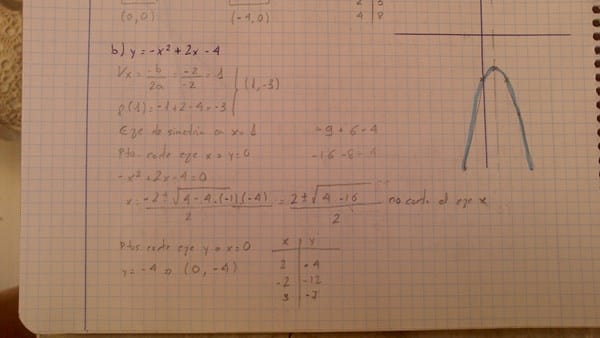 (0,0) (-1,0) 2 5
4 8
b) y = -x² + 2x - 4
Vx = -b/2a = -2/-2 = 1
(1,-3)
p(1) = -1+2-4 = -3
Eje de simetría en x = 1 -9+6-4
Ptos corte eje x → y=0 -16-8-4
-x²+2x-4=0
x = -2±√4-4·(-1)(-4) / 2 = 2±√4-16 / 2 no corta el eje x
Ptos corte eje y → x=0 x y
y = -4 ⇒ (0,-4) 2 -4
-2 -12
3 -7